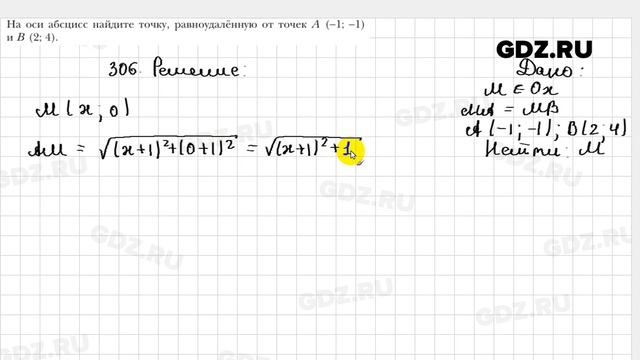 На оси абсцисс найдите точку, равноудалённую от точек A (−1; −1)
и B (2; 4).
GDZ.RU
306. Решение:
M(x; 0)
AM = √(x+1)²+(0+1)² = √(x+1)²+1
Дано:
M ∈ Ox
MA = MB
A(-1; -1); B(2; 4)
Найти: M
GDZ.RU
GDZ.RU
GDZ.RU
GDZ.RU
GDZ.RU
GDZ.RU